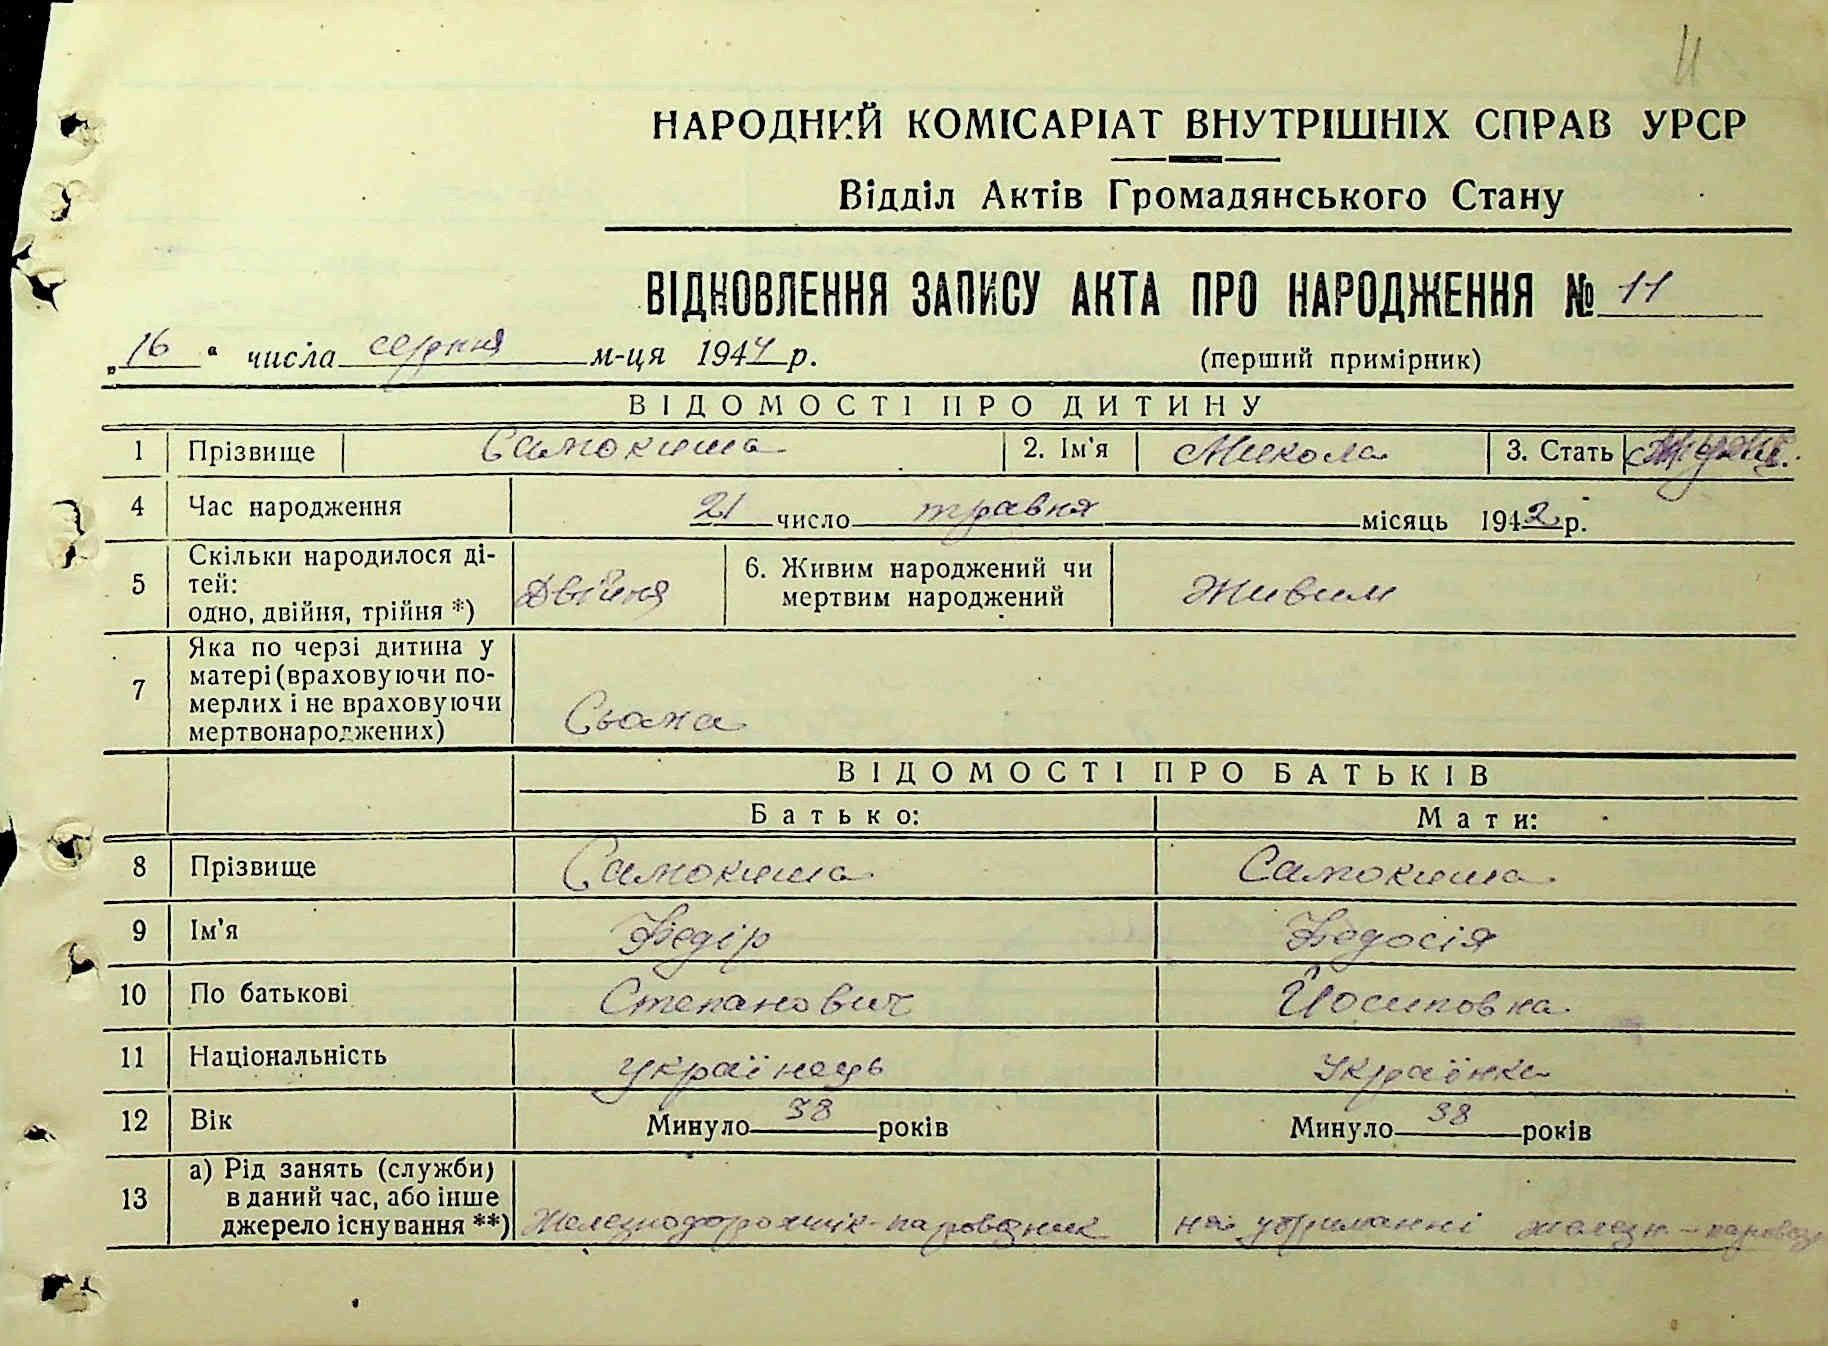 11
НАРОДНИЙ КОМІСАРІАТ ВНУТРІШНІХ СПРАВ УРСР
Відділ Актів Громадянського Стану
ВІДНОВЛЕННЯ ЗАПИСУ АКТА ПРО НАРОДЖЕННЯ № 11
„16“ числа серпня м-ця 1944 р. (перший примірник)
ВІДОМОСТІ ПРО ДИТИНУ
1 Прізвище Самокиша 2. Ім'я Микола 3. Стать
4 Час народження 21 число травня місяць 1942 р.
5 Скільки народилося ді-
тей:
одно, двійня, трійня *) Двійня 6. Живим народжений чи
мертвим народжений Живим
7 Яка по черзі дитина у
матері (враховуючи по-
мерлих і не враховуючи
мертвонароджених) Сьома
ВІДОМОСТІ ПРО БАТЬКІВ
Батько: Мати:
8 Прізвище Самокиша Самокиша
9 Ім'я Федір Федосія
10 По батькові Степанович Йосиповна
11 Національність українець Українка
12 Вік Минуло 38 років Минуло 38 років
13 а) Рід занять (служби)
в даний час, або інше
джерело існування **) Железнодорожник-паровозник на утриманні железн-паровоз